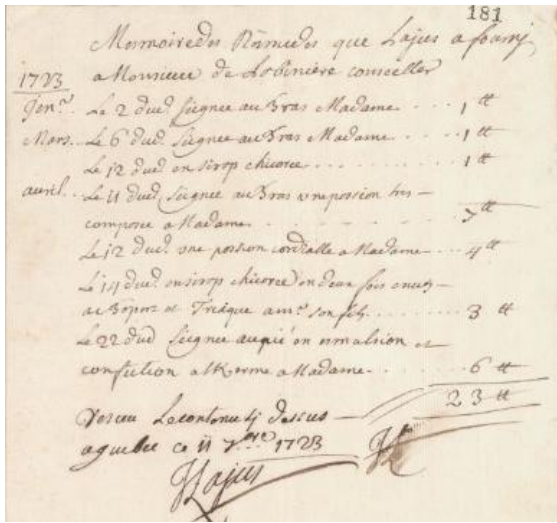 181
Memoire des Remedes que Lajus a fourny
a Monsieur de Lotbiniere conseiller
1723
Jenr. Le 2 dud. seignee au Bras Madame . . . . 1 tt
Mars . . Le 6 dud. seignee au Bras Madame . . . . 1 tt
Le 12 dud un sirop chicoree . . . . . . . . . . 1 tt
auril . . Le 11 dud. seignee au Bras une possion tres
composee a Madame . . . . . . . . . 7 tt
Le 12 dud. une possion cordialle a Madame . . . 4 tt
Le 14 dud un sirop chicoree en deux fois
de et Treaque a mr. son fils . . . . 3 tt
Le 22 dud seignee au pié un emulsion et
confection alKerme a Madame . . . . . . . 6 tt
23 tt
Receu Le contenu cy dessus
a quebec ce 11 7bre 1723
JLajus